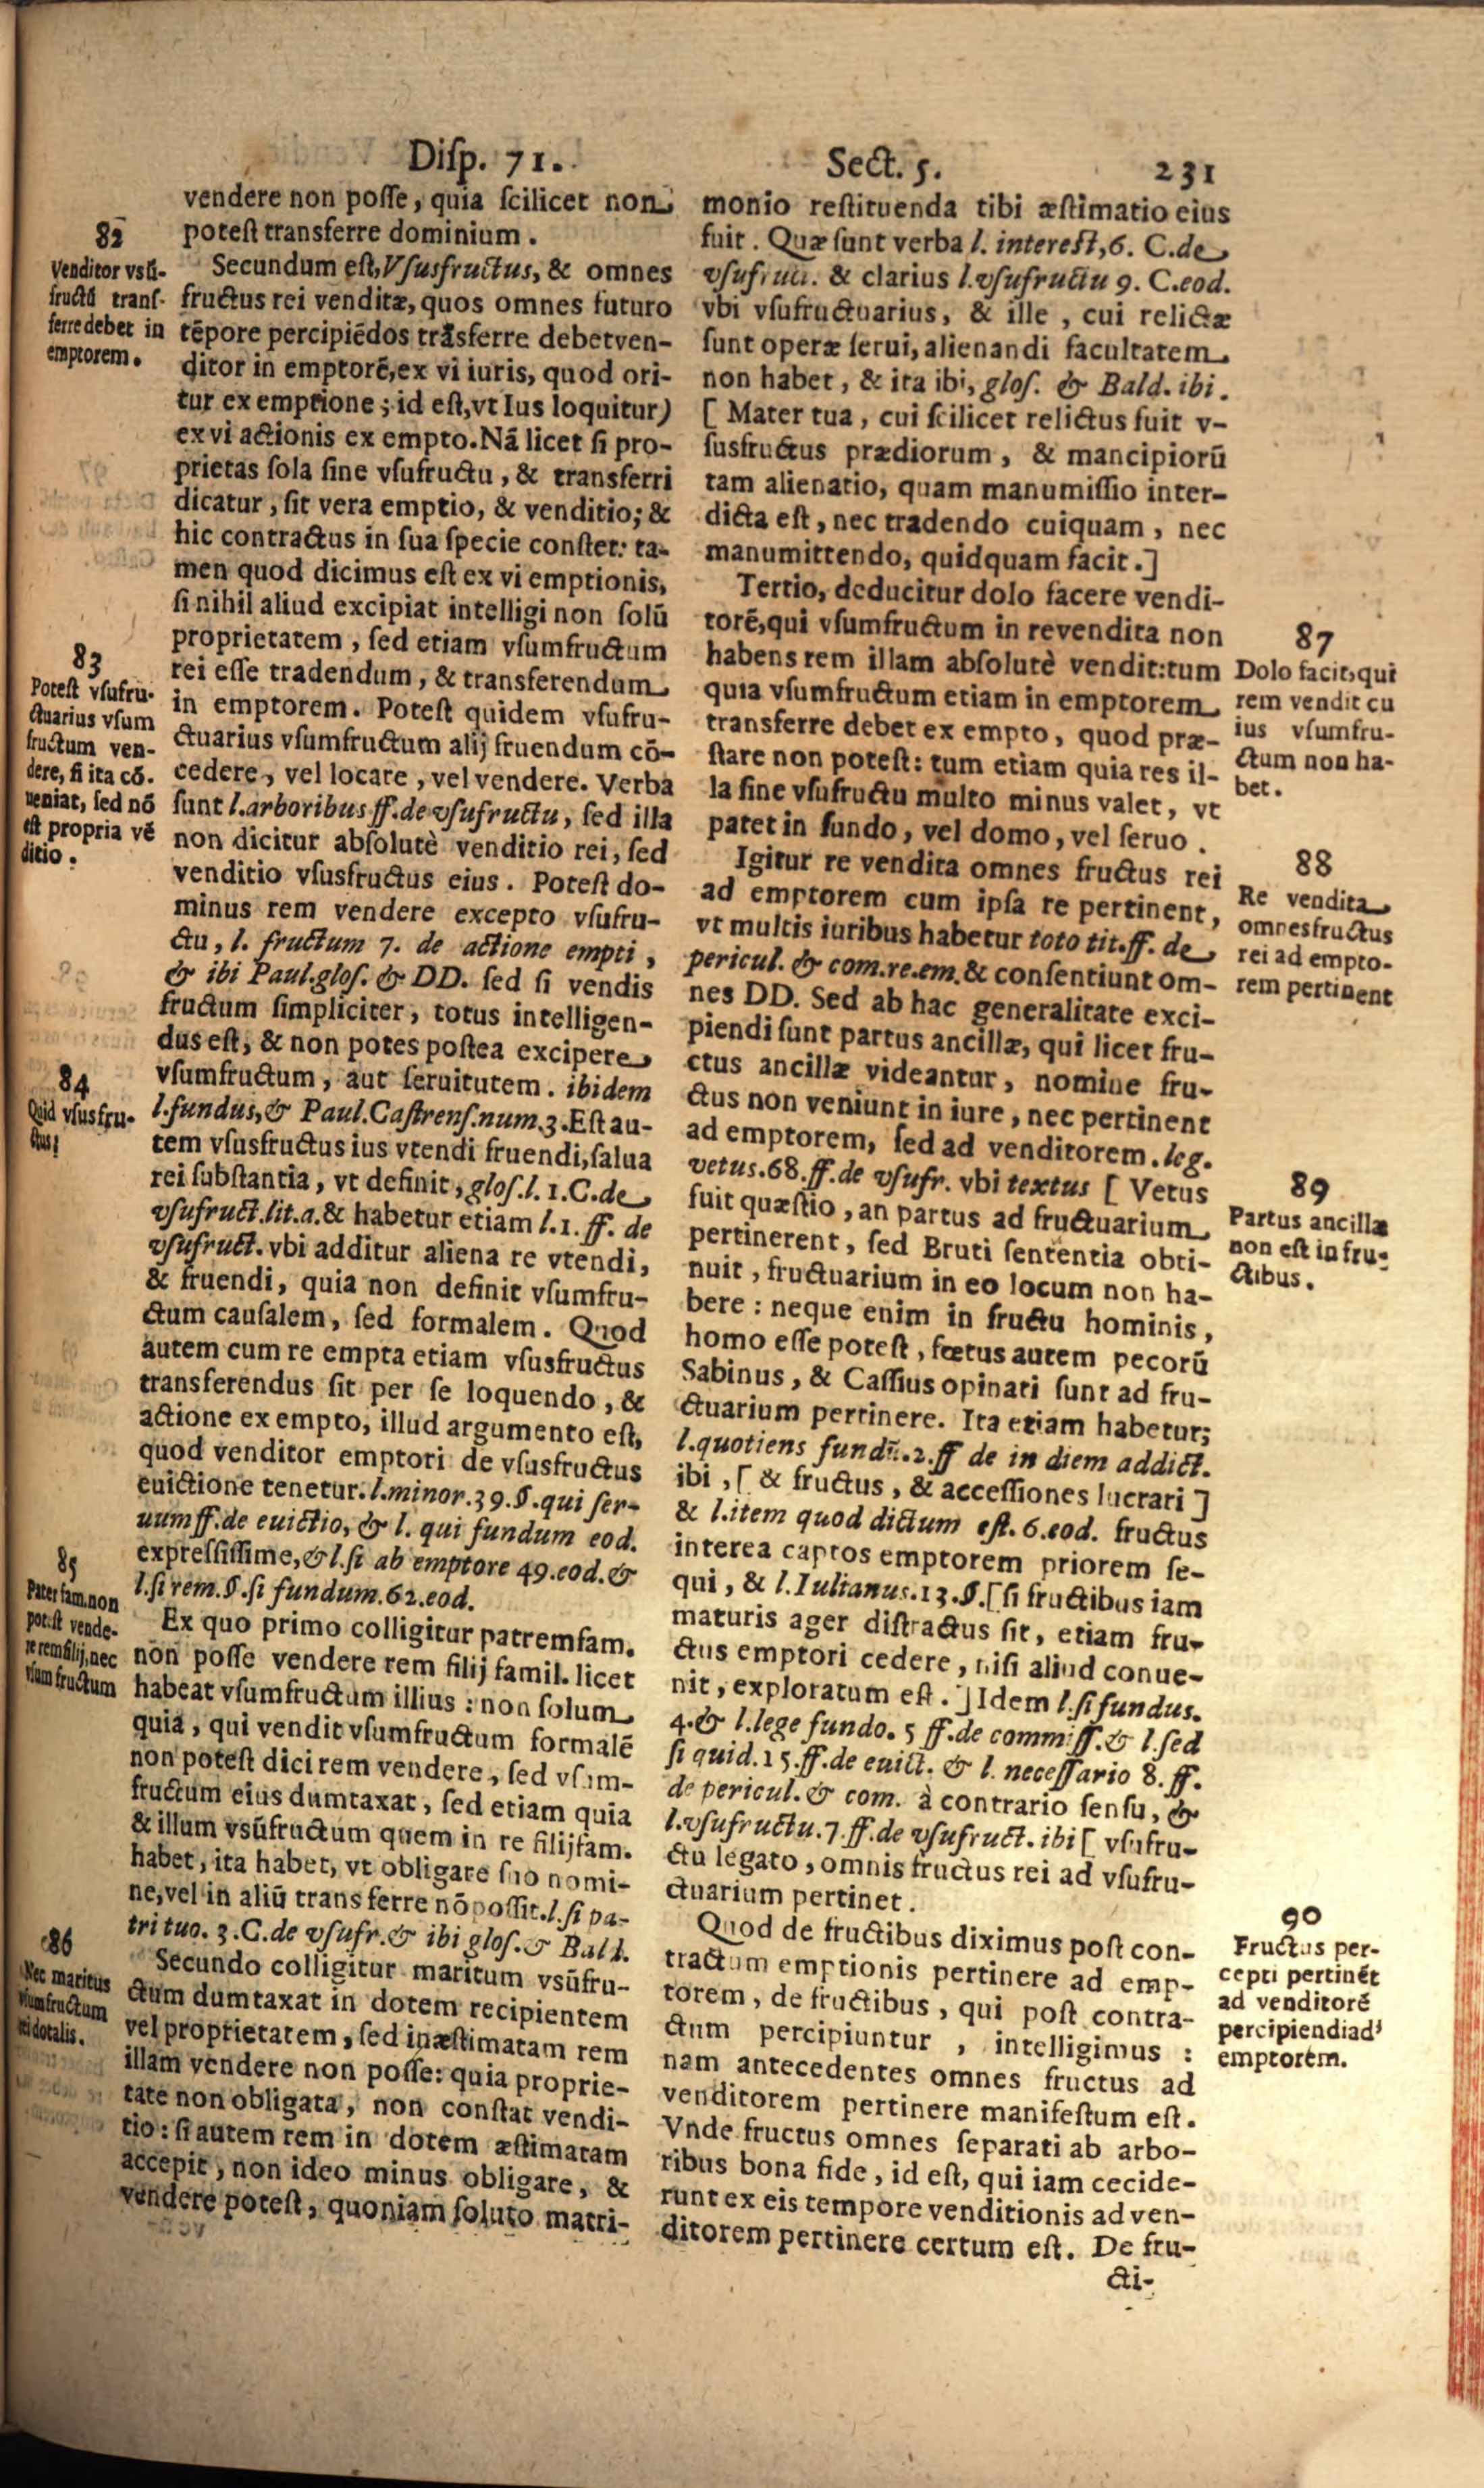 Disp. 71.
Sect. 5.
231
vendere non posse, quia scilicet non
potest transferre dominium.
82
Venditor vsū-
fructū trans-
ferre debet in
emptorem.
Secundum est, Vsusfructus, & omnes
fructus rei venditæ, quos omnes futuro
tēpore percipiēdos trāsferre debet ven-
ditor in emptorē, ex vi iuris, quod ori-
tur ex emptione; id est, vt Ius loquitur)
ex vi actionis ex empto. Nā licet si pro-
prietas sola sine vsufructu, & transferri
dicatur, sit vera emptio, & venditio; &
hic contractus in sua specie constet: ta-
men quod dicimus est ex vi emptionis,
si nihil aliud excipiat intelligi non solū
proprietatem, sed etiam vsumfructum
rei esse tradendum, & transferendum
in emptorem. Potest quidem vsufru-
ctuarius vsumfructum alij fruendum cō-
cedere, vel locare, vel vendere. Verba
sunt l.arboribus ff.de vsufructu, sed illa
non dicitur absolutè venditio rei, sed
venditio vsusfructus eius. Potest do-
minus rem vendere excepto vsufru-
ctu, l. fructum 7. de actione empti,
& ibi Paul.glos. & DD. sed si vendis
fructum simpliciter, totus intelligen-
dus est, & non potes postea excipere
vsumfructum, aut seruitutem. ibidem
l.fundus,& Paul.Castrens.num.3.Est au-
tem vsusfructus ius vtendi fruendi, salua
rei substantia, vt definit, glos.l.1.C.de
vsufruct.lit.a.& habetur etiam l.1. ff. de
vsufruct. vbi additur aliena re vtendi,
& fruendi, quia non definit vsumfru-
ctum causalem, sed formalem. Quod
autem cum re empta etiam vsusfructus
transferendus sit per se loquendo, &
actione ex empto, illud argumento est,
quod venditor emptori de vsusfructus
euictione tenetur.l.minor.39.§.qui ser-
uum ff.de euictio, & l. qui fundum eod.
expressissime,& l.si ab emptore 49.eod.&
l.si rem.§.si fundum.62.eod.
83
Potest vsufru-
ctuarius vsum
fructum ven-
dere, si ita cō-
ueniat, sed nō
est propria vē
ditio.
84
Quid vsusfru-
ctus?
85
Pater fam.non
potest vende-
re rem filij, nec
vsum fructum
Ex quo primo colligitur patremfam.
non posse vendere rem filij famil. licet
habeat vsumfructum illius: non solum
quia, qui vendit vsumfructum formalē
non potest dici rem vendere, sed vsum-
fructum eius dumtaxat, sed etiam quia
& illum vsūfructum quem in re filijfam.
habet, ita habet, vt obligare suo nomi-
ne, vel in aliū transferre nō possit.l.si pa-
tri tuo. 3.C.de vsufr.& ibi glos.& Bald.
86
Nec maritus
vsumfructum
rei dotalis.
Secundo colligitur maritum vsūfru-
ctum dumtaxat in dotem recipientem
vel proprietatem, sed inæstimatam rem
illam vendere non posse: quia proprie-
tate non obligata, non constat vendi-
tio: si autem rem in dotem æstimatam
accepit, non ideo minus obligare, &
vendere potest, quoniam soluto matri-
monio restituenda tibi æstimatio eius
fuit. Quæ sunt verba l. interest,6. C.de
vsufruct. & clarius l.vsufructu 9. C.eod.
vbi vsufructuarius, & ille, cui relictæ
sunt operæ serui, alienandi facultatem
non habet, & ita ibi, glos. & Bald. ibi.
[ Mater tua, cui scilicet relictus fuit v-
susfructus prædiorum, & mancipiorū
tam alienatio, quam manumissio inter-
dicta est, nec tradendo cuiquam, nec
manumittendo, quidquam facit.]
Tertio, deducitur dolo facere vendi-
torē, qui vsumfructum in re vendita non
habens rem illam absolutè vendit: tum
quia vsumfructum etiam in emptorem
transferre debet ex empto, quod præ-
stare non potest: tum etiam quia res il-
la sine vsufructu multo minus valet, vt
patet in fundo, vel domo, vel seruo.
87
Dolo facit, qui
rem vendit cu
ius vsumfru-
ctum non ha-
bet.
Igitur re vendita omnes fructus rei
ad emptorem cum ipsa re pertinent,
vt multis iuribus habetur toto tit.ff. de
pericul. & com.re.em.& consentiunt om-
nes DD. Sed ab hac generalitate exci-
piendi sunt partus ancillæ, qui licet fru-
ctus ancillæ videantur, nomine fru-
ctus non veniunt in iure, nec pertinent
ad emptorem, sed ad venditorem. leg.
vetus.68.ff.de vsufr. vbi textus [ Vetus
fuit quæstio, an partus ad fructuarium
pertinerent, sed Bruti sententia obti-
nuit, fructuarium in eo locum non ha-
bere: neque enim in fructu hominis,
homo esse potest, fœtus autem pecorū
Sabinus, & Cassius opinati sunt ad fru-
ctuarium pertinere. Ita etiam habetur;
l.quotiens fundū.2.ff de in diem addict.
ibi, [ & fructus, & accessiones lucrari ]
& l.item quod dictum est. 6.eod. fructus
interea captos emptorem priorem se-
qui, & l.Iulianus.13.§.[ si fructibus iam
maturis ager distractus sit, etiam fru-
ctus emptori cedere, nisi aliud conue-
nit, exploratum est.] Idem l.si fundus.
4.& l.lege fundo. 5 ff.de commiss.& l.sed
si quid.15.ff.de euict. & l. necessario 8. ff.
de pericul.& com. à contrario sensu, &
l.vsufructu.7.ff.de vsufruct. ibi [ vsufru-
ctu legato, omnis fructus rei ad vsufru-
ctuarium pertinet.
88
Re vendita
omnes fructus
rei ad empto-
rem pertinent
89
Partus ancillæ
non est in fru-
ctibus.
Quod de fructibus diximus post con-
tractum emptionis pertinere ad emp-
torem, de fructibus, qui post contra-
ctum percipiuntur, intelligimus:
nam antecedentes omnes fructus ad
venditorem pertinere manifestum est.
Vnde fructus omnes separati ab arbo-
ribus bona fide, id est, qui iam cecide-
runt ex eis tempore venditionis ad ven-
ditorem pertinere certum est. De fru-
cti-
90
Fructus per-
cepti pertinēt
ad venditorē
percipiendi ad
emptorem.